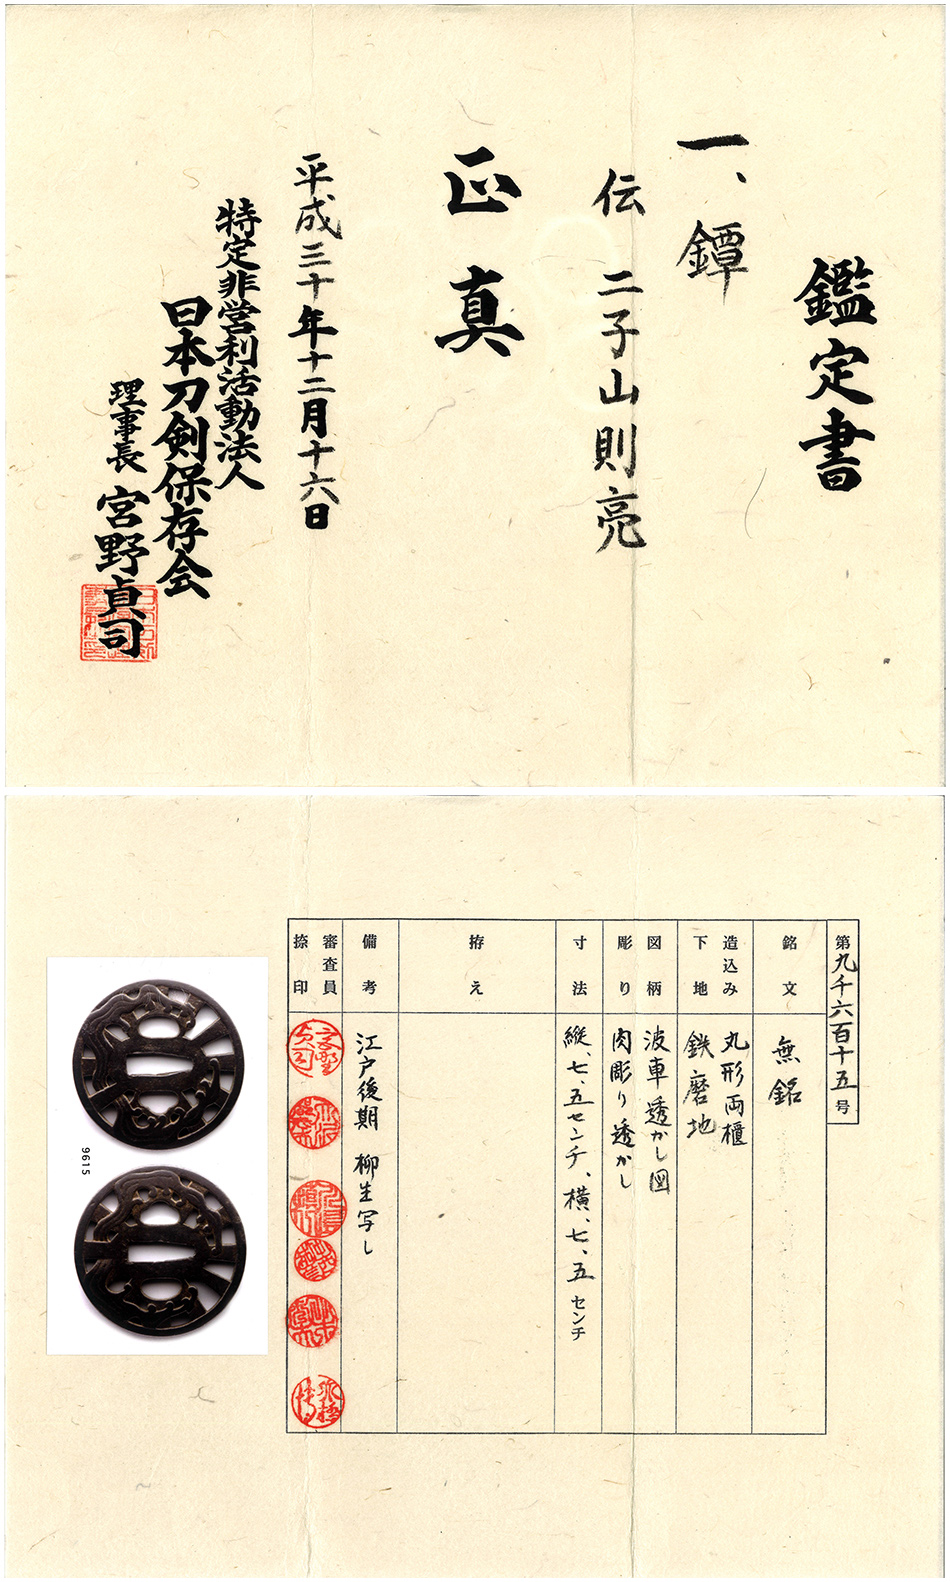 鑑定書
一、鐔
伝 二子山則亮
正真
平成三十年十二月十六日
特定非営利活動法人
日本刀剣保存会
理事長 宮野貞司
第九千六百十五号
銘文
無銘
造込み
下地
丸形両櫃
鉄磨地
図柄
彫り
波車透かし図
肉彫り透かし
寸法
縦、七、五センチ、横、七、五センチ
拵え
備考
江戸後期 柳生写し
審査員
捺印
9615